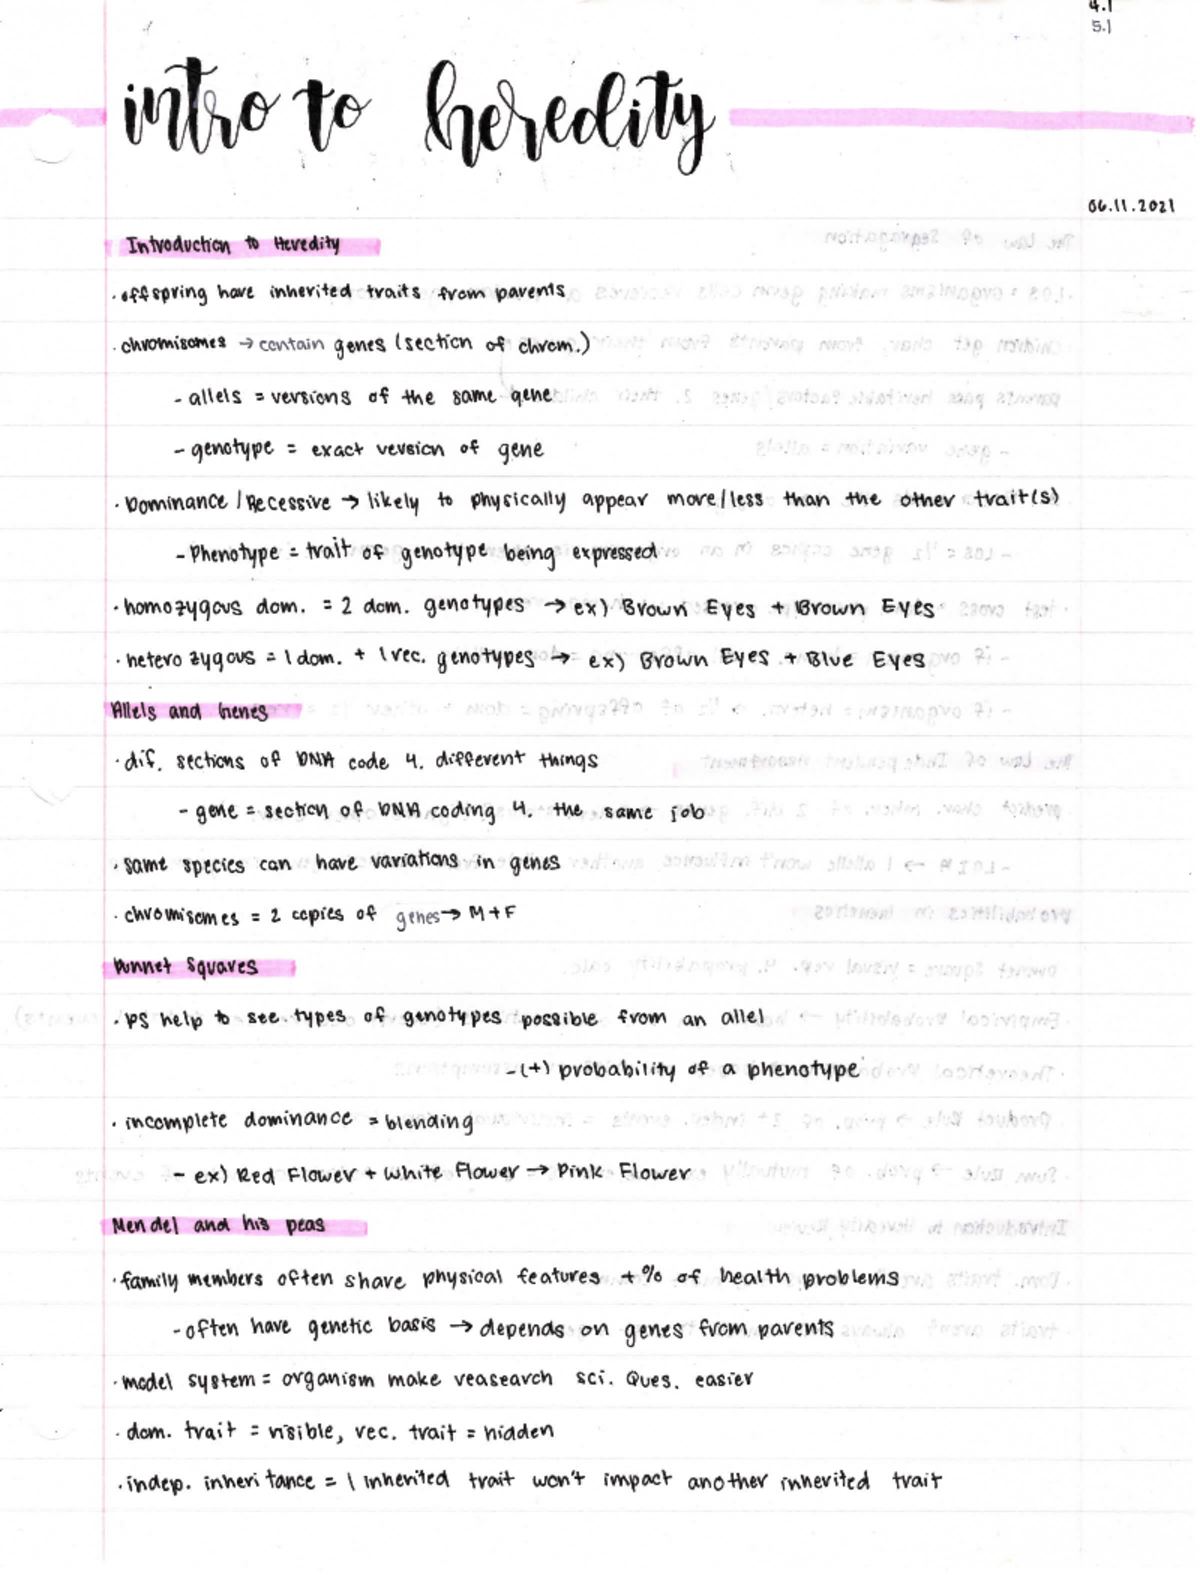 4.1
5.1
intro to heredity
06.11.2021
Introduction to Heredity
· offspring have inherited traits from parents
· chromisomes → contain genes (section of chrom.)
- allels = versions of the same gene
- genotype = exact version of gene
· Dominance / Recessive → likely to physically appear more/less than the other trait(s)
- Phenotype = trait of genotype being expressed
· homozygous dom. = 2 dom. genotypes → ex) Brown Eyes + Brown Eyes
· heterozygous = 1 dom. + 1 rec. genotypes → ex) Brown Eyes + Blue Eyes
Allels and Genes
· dif. sections of DNA code 4. different things
- gene = section of DNA coding 4. the same job
· same species can have variations in genes
· chromisomes = 2 copies of genes → M + F
Punnet Squares
· PS help to see types of genotypes possible from an allel
- (+) probability of a phenotype
· incomplete dominance = blending
- ex) Red Flower + White Flower → Pink Flower
Mendel and his peas
· family members often share physical features + % of health problems
- often have genetic basis → depends on genes from parents
· model system = organism make reasearch sci. Ques. easier
· dom. trait = visible, rec. trait = hidden
· indep. inheritance = 1 inherited trait won't impact another inherited trait